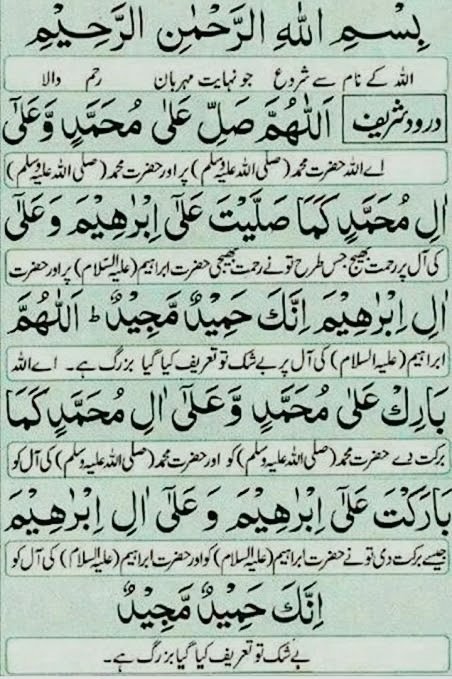 بِسْمِ اللهِ الرَّحْمٰنِ الرَّحِيْمِ
اللہ کے نام سے شروع جو نہایت مہربان رحم والا
درود شریف اَللّٰهُمَّ صَلِّ عَلٰى مُحَمَّدٍ وَّعَلٰٓى
اے اللہ حضرت محمد (صلی اللہ علیہ وسلم) پر اور حضرت محمد (صلی اللہ علیہ وسلم)
اٰلِ مُحَمَّدٍ كَمَا صَلَّيْتَ عَلٰٓى اِبْرٰهِيْمَ وَعَلٰٓى
کی آل پر رحمت بھیج جس طرح تو نے رحمت بھیجی حضرت ابراہیم (علیہ السّلام) پر اور حضرت
اٰلِ اِبْرٰهِيْمَ اِنَّكَ حَمِيْدٌ مَّجِيْدٌ ط اَللّٰهُمَّ
ابراہیم (علیہ السلام) کی آل پر بے شک تو تعریف کیا گیا بزرگ ہے۔ اے اللہ
بَارِكْ عَلٰى مُحَمَّدٍ وَّعَلٰٓى اٰلِ مُحَمَّدٍ كَمَا
برکت دے حضرت محمد (صلی اللہ علیہ وسلم) کو اور حضرت محمد (صلی اللہ علیہ وسلم) کی آل کو
بَارَكْتَ عَلٰٓى اِبْرٰهِيْمَ وَ عَلٰٓى اٰلِ اِبْرٰهِيْمَ
جیسے برکت دی تو نے حضرت ابراہیم (علیہ السلام) کو اور حضرت ابراہیم (علیہ السلام) کی آل کو
اِنَّكَ حَمِيْدٌ مَّجِيْدٌ
بے شک تو تعریف کیا گیا بزرگ ہے۔